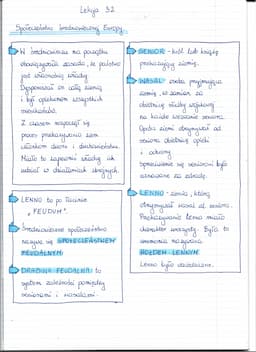 Lekcja 32
Społeczeństwo średniowiecznej Europy.
W średniowieczu na początku
obowiązywała zasada, że państwo
jest własnością władcy.
Dysponował on całą ziemią
i był opiekunem wszystkich
mieszkańców.
Z czasem zaczął się
proces przekazywania ziem
władcom dworu i duchowieństwu.
Miało to zapewnić władcy ich
udział w działaniach zbrojnych.
LENNO to po łacinie
"FEUDUM".
Średniowieczne społeczeństwo
nazywa się SPOŁECZEŃSTWEM
FEUDALNYM.
DRABINA FEUDALNA to
system zależności pomiędzy
seniorami i wasalami.
SENIOR - król lub książę
przekazujący ziemię.
WASAL - osoba przyjmująca
ziemię, w zamian za
obietnicę służby wojskowej
na każde wezwanie seniora.
Oprócz ziemi otrzymywał od
seniora obietnicę opieki
i ochrony.
Sprzeciwienie się seniorowi było
uznawane za zdradę.
LENNO - ziemia, którą
otrzymywał wasal od seniora.
Przekazywanie lenna miało
charakter uroczysty. Była to
ceremonia nazywana
HOŁDEM LENNYM.
Lenno było dziedziczne.